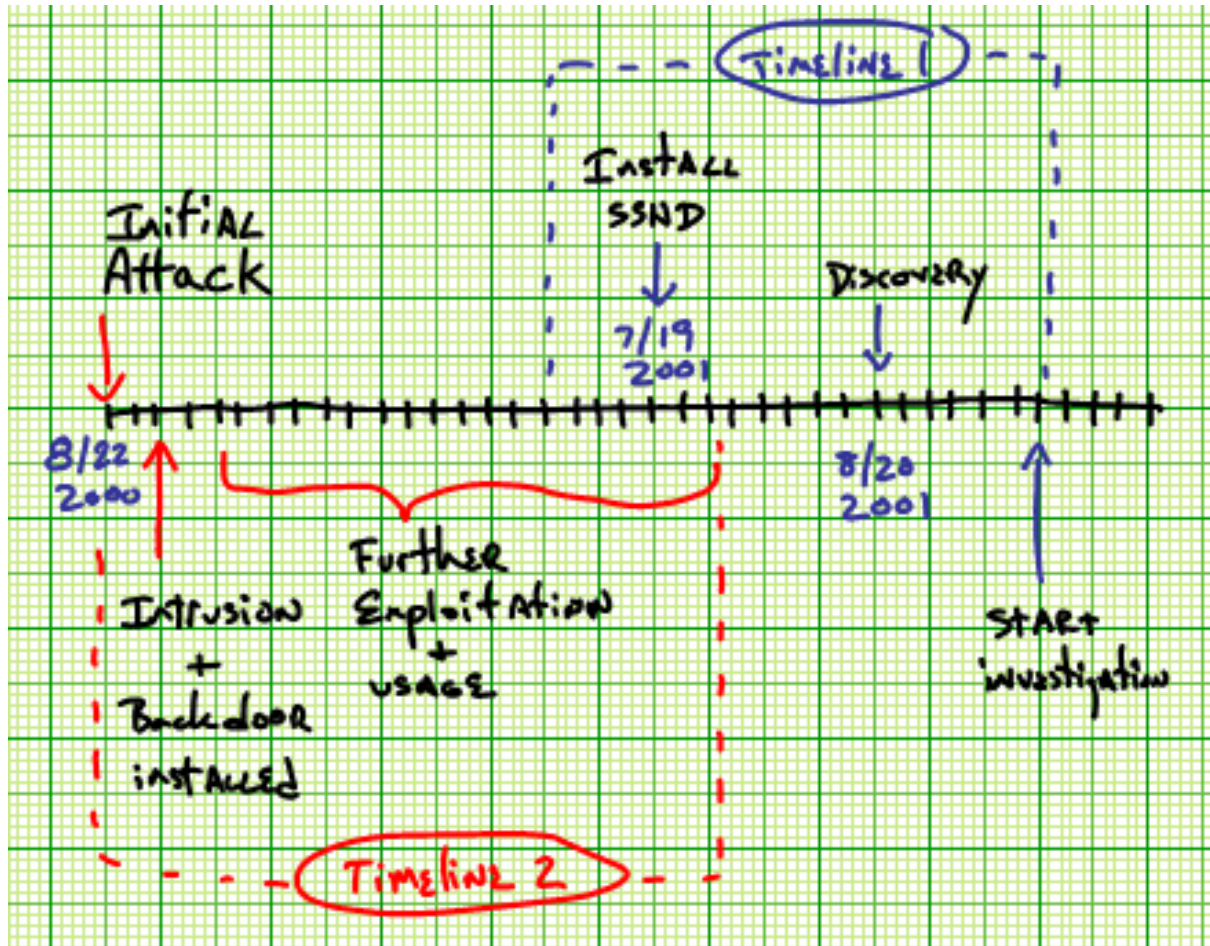 Timeline 1
Install
SSND
Initial
Attack
Discovery
7/19
2001
8/22
2000
8/20
2001
Further
Exploitation
+
usage
Intrusion
+
Backdoor
installed
Start
investigation
Timeline 2